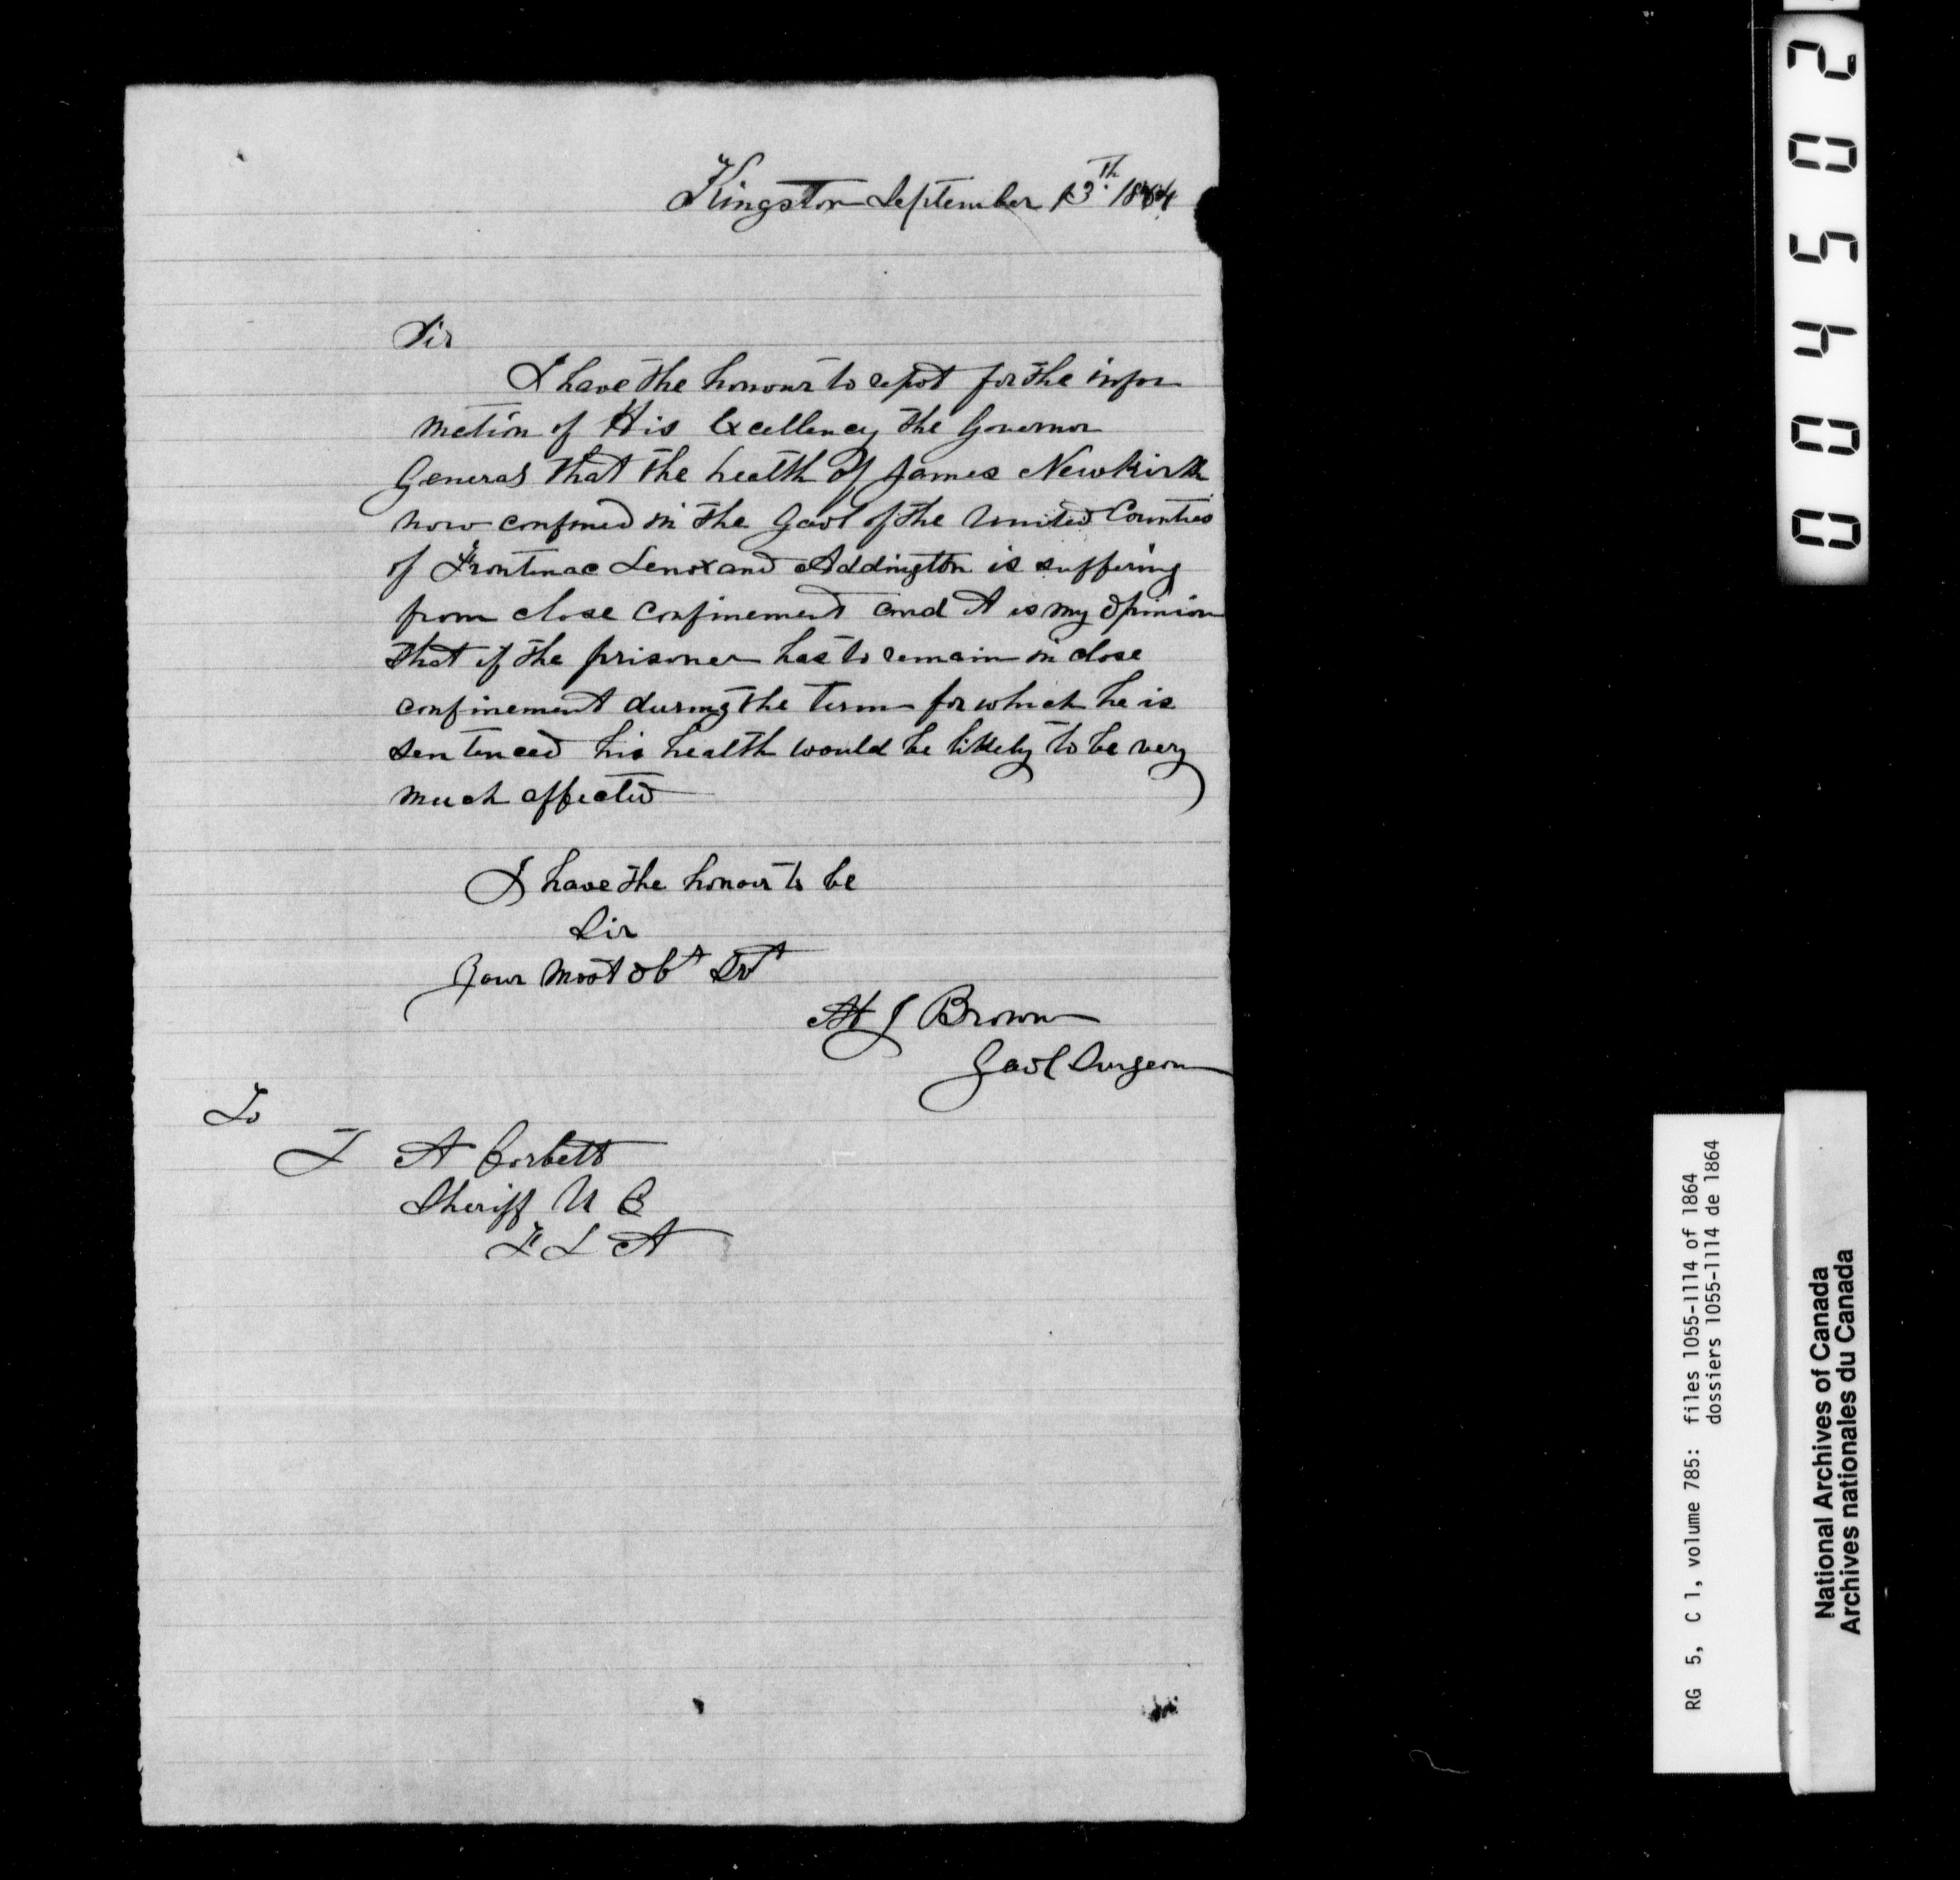 Kingston September 13th. 1864
Sir
I have the honour to repot for the infor
mation of His Excellency the Governor
General that the health of James Newkirk
now confined in the Gaol of the United Counties
of Frontinac Lenox and Addington is suffering
from close confinement and it is my opinion
that if the prisoner has to remain in close
confinement during the term for which he is
sentenced his health would be likely to be very
much affected
I have the honour to be
Sir
Your most obt Srt
H J Brown
Gaol Surgeon
To
T A Corbett
Sheriff U C
F L A
004502
RG 5, C 1, volume 785: files 1055-1114 of 1864
dossiers 1055-1114 de 1864
National Archives of Canada
Archives nationales du Canada